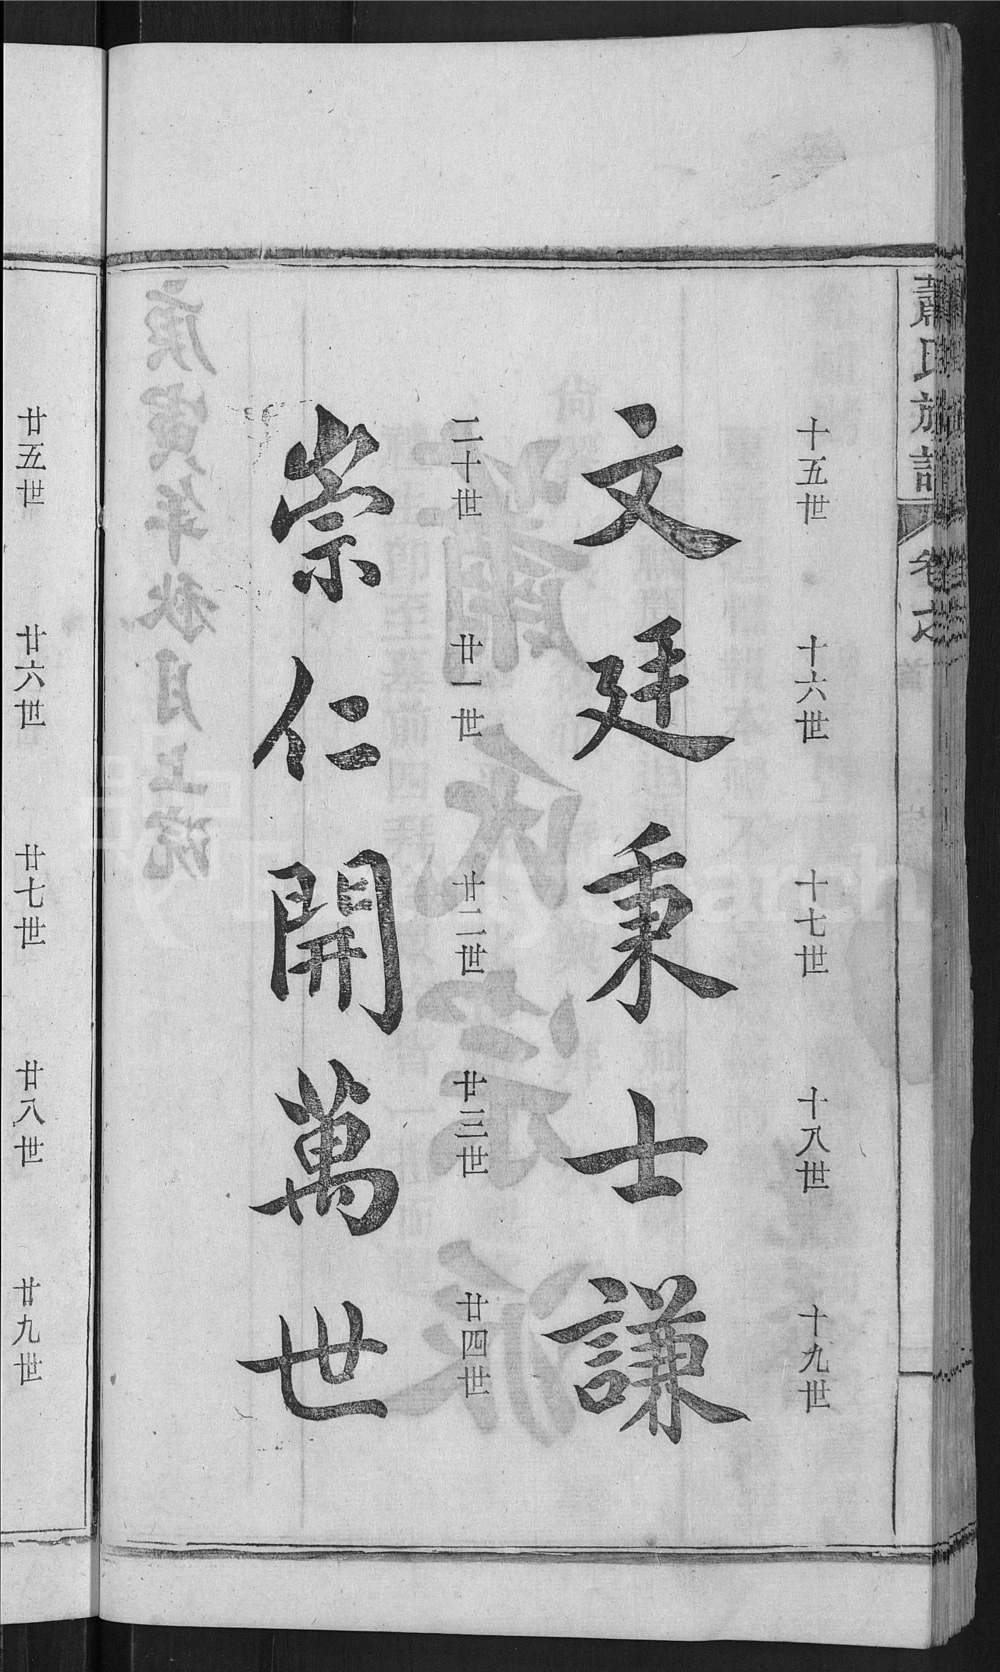 蕭氏族譜 卷之首
十五世 十六世 十七世 十八世 十九世
文廷秉士謙
二十世 廿一世 廿二世 廿三世 廿四世
崇仁開萬世
廿五世 廿六世 廿七世 廿八世 廿九世